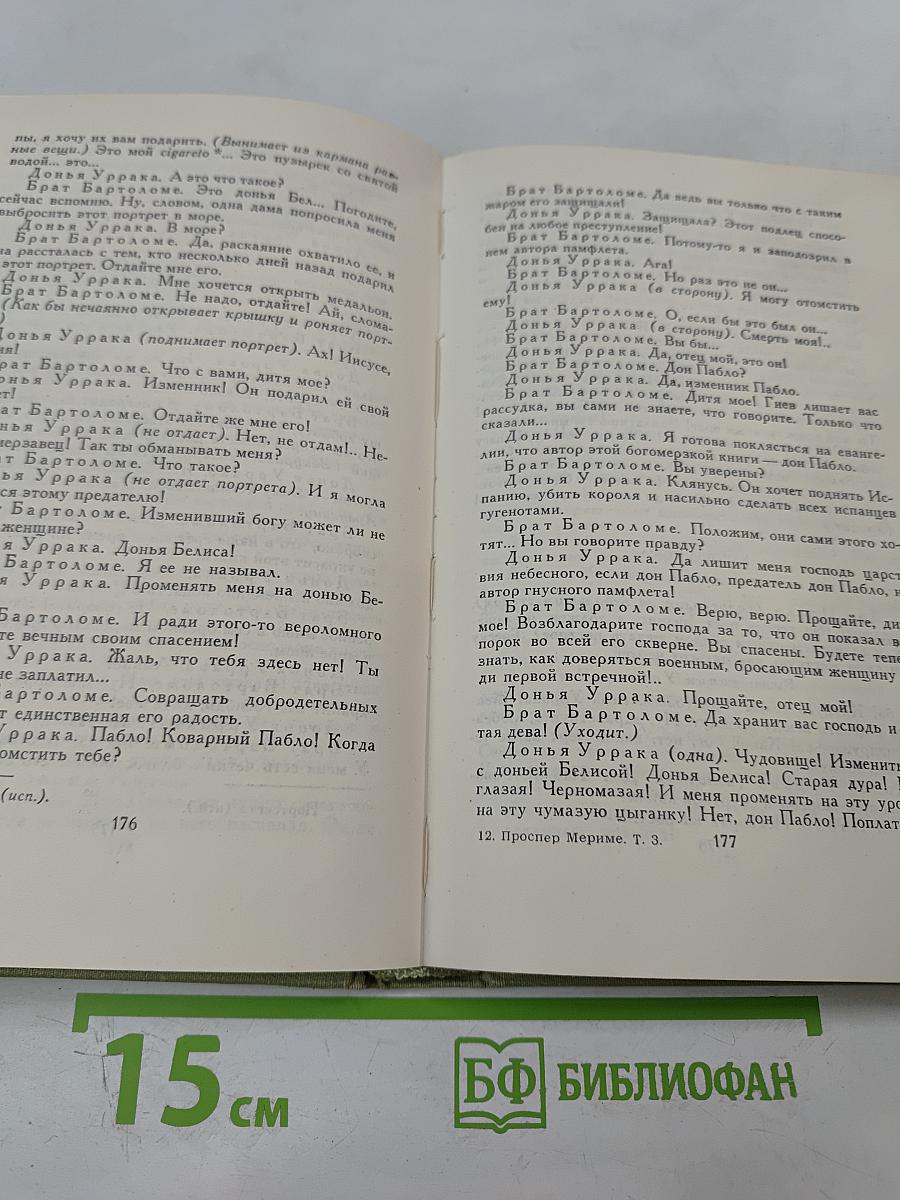 пы, я хочу их вам подарить. (Вынимает из кармана раз-
ные вещи.) Это мой cigareto *... Это пузырек со святой
водой... это...
Донья Уррака. А это что такое?
Брат Бартоломе. Это донья Бел... Погодите,
сейчас вспомню. Ну, словом, одна дама попросила меня
выбросить этот портрет в море.
Донья Уррака. В море?
Брат Бартоломе. Да, раскаяние охватило ее, и
на рассталась с тем, кто несколько дней назад подарил
этот портрет. Отдайте мне его.
Донья Уррака. Мне хочется открыть медальон.
Брат Бартоломе. Не надо, отдайте! Ай, слома-
(Как бы нечаянно открывает крышку и роняет порт-
)
Донья Уррака (поднимает портрет). Ах! Иисусе,
ия!
рат Бартоломе. Что с вами, дитя мое?
онья Уррака. Изменник! Он подарил ей свой
ет!
рат Бартоломе. Отдайте же мне его!
нья Уррака (не отдает). Нет, не отдам!.. Не-
мерзавец! Так ты обманывать меня?
ат Бартоломе. Что такое?
ья Уррака (не отдает портрета). И я могла
ся этому предателю!
т Бартоломе. Изменивший богу может ли не
женщине?
я Уррака. Донья Белиса!
Бартоломе. Я ее не называл.
я Уррака. Променять меня на донью Бе-
Бартоломе. И ради этого-то вероломного
те вечным своим спасением!
Уррака. Жаль, что тебя здесь нет! Ты
не заплатил...
Бартоломе. Совращать добродетельных
т единственная его радость.
Уррака. Пабло! Коварный Пабло! Когда
омстить тебе?
(исп.).
176
Брат Бартоломе. Да ведь вы только что с таким
жаром его защищали!
Донья Уррака. Защищала? Этот подлец спосо-
бен на любое преступление!
Брат Бартоломе. Потому-то я и заподозрил в
нем автора памфлета.
Донья Уррака. Ага!
Брат Бартоломе. Но раз это не он...
Донья Уррака (в сторону). Я могу отомстить
ему!
Брат Бартоломе. О, если бы это был он...
Донья Уррака (в сторону). Смерть моя!..
Брат Бартоломе. Вы бы...
Донья Уррака. Да, отец мой, это он!
Брат Бартоломе. Дон Пабло?
Донья Уррака. Да, изменник Пабло.
Брат Бартоломе. Дитя мое! Гнев лишает вас
рассудка, вы сами не знаете, что говорите. Только что
сказали...
Донья Уррака. Я готова поклясться на еванге-
лии, что автор этой богомерзкой книги — дон Пабло.
Брат Бартоломе. Вы уверены?
Донья Уррака. Клянусь. Он хочет поднять Ис-
панию, убить короля и насильно сделать всех испанцев
гугенотами.
Брат Бартоломе. Положим, они сами этого хо-
тят... Но вы говорите правду?
Донья Уррака. Да лишит меня господь царст
вия небесного, если дон Пабло, предатель дон Пабло, н
автор гнусного памфлета!
Брат Бартоломе. Верю, верю. Прощайте, ди
мое! Возблагодарите господа за то, что он показал в
порок во всей его скверне. Вы спасены. Будете тепе
знать, как доверяться военным, бросающим женщину
ди первой встречной!..
Донья Уррака. Прощайте, отец мой!
Брат Бартоломе. Да хранит вас господь и
тая дева! (Уходит.)
Донья Уррака (одна). Чудовище! Изменить
с доньей Белисой! Донья Белиса! Старая дура!
глазая! Черномазая! И меня променять на эту уро
на эту чумазую цыганку! Нет, дон Пабло! Поплат
12. Проспер Мериме. Т. 3.
177
15 см
БФ БИБЛИОФАН